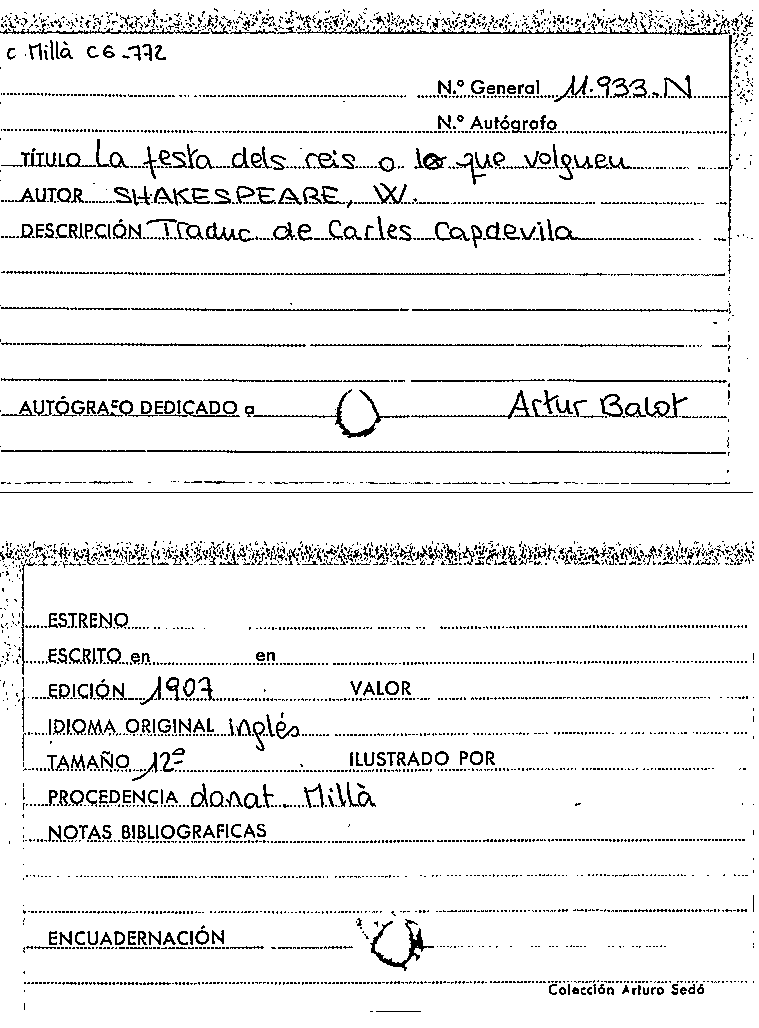 C Millà C6-772
N.º General 11.933-N
N.º Autógrafo
TÍTULO La festa dels reis o lo que volgueu
AUTOR SHAKESPEARE, W.
DESCRIPCIÓN Traduc. de Carles Capdevila
AUTÓGRAFO DEDICADO a Artur Balot
ESTRENO
ESCRITO en en
EDICIÓN 1907 VALOR
IDIOMA ORIGINAL inglés
TAMAÑO 12º ILUSTRADO POR
PROCEDENCIA donat. Millà
NOTAS BIBLIOGRAFICAS
ENCUADERNACIÓN
Colección Arturo Sedó